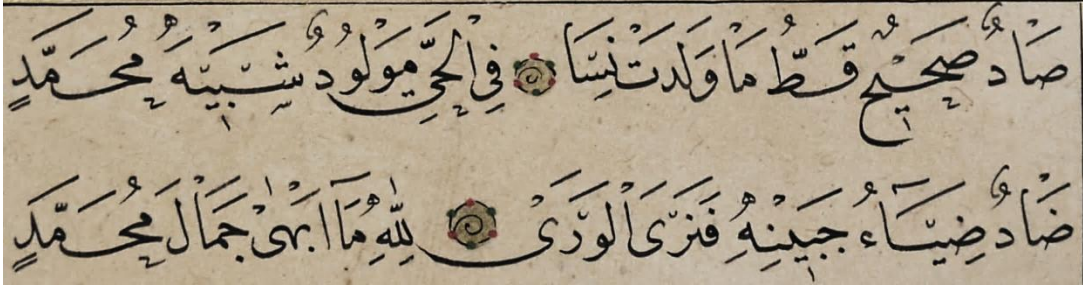 صَادٌ صَحِيحٌ قَطُّ مَا وَلَدَتْ نِسَا فِي الْحَيِّ مَوْلُودٌ شَبِيهَ مُحَمَّدٍ
ضَادٌ ضِيَاءُ جَبِينِهِ فَتَرَى الْوَرَى لِلّٰهِ مَا اَبْهٰى جَمَالَ مُحَمَّدٍ